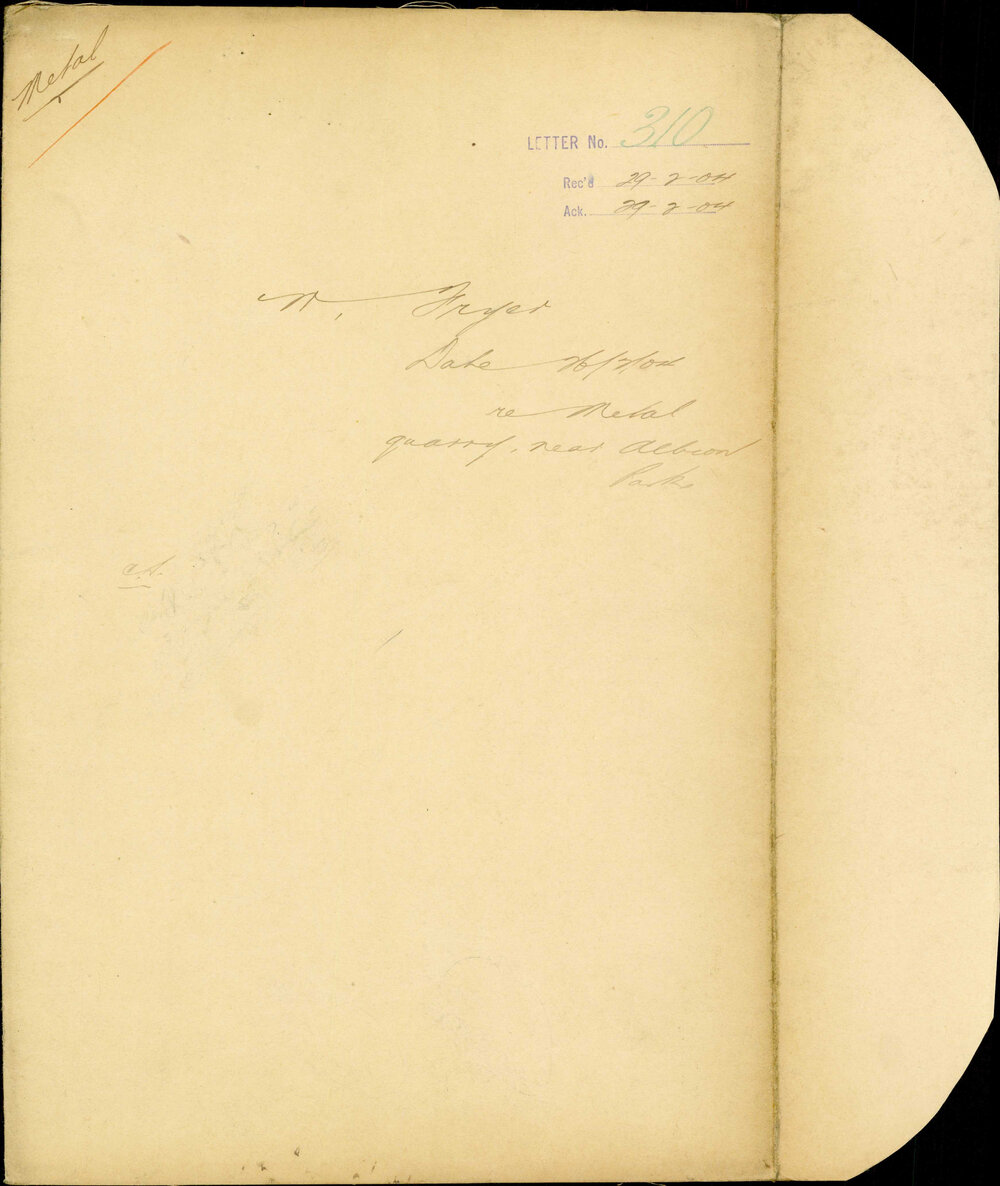 Metal
LETTER No. 310
Rec'd 29-2-04
Ack. 29-2-04
W. Fryer
Date 26/2/04
re Metal
quarry, near Albion
Park